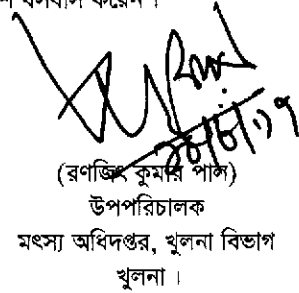 করেন।
২৮/৮/১৭
(রণজিৎ কুমার পাল)
উপপরিচালক
মৎস্য অধিদপ্তর, খুলনা বিভাগ
খুলনা।